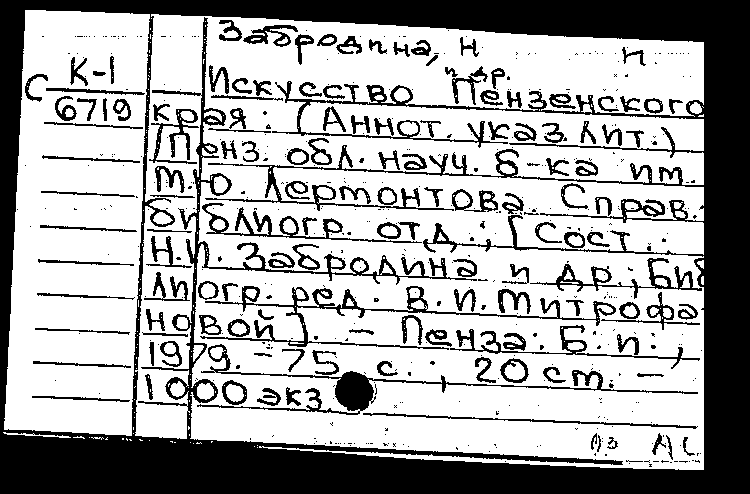 Забродина, Н
и др.
К-1
С
6719
Искусство Пензенского
края: (Аннот. указ. лит.)
/Пенз. обл. науч. б-ка им.
М.Ю. Лермонтова. Справ.-
библиогр. отд.; [Сост.:
Н.И. Забродина и др.; Биб
лиогр. ред. В.И. Митрофа-
новой]. – Пенза: Б.и.,
1979. – 75 с.; 20 см. –
1000 экз.